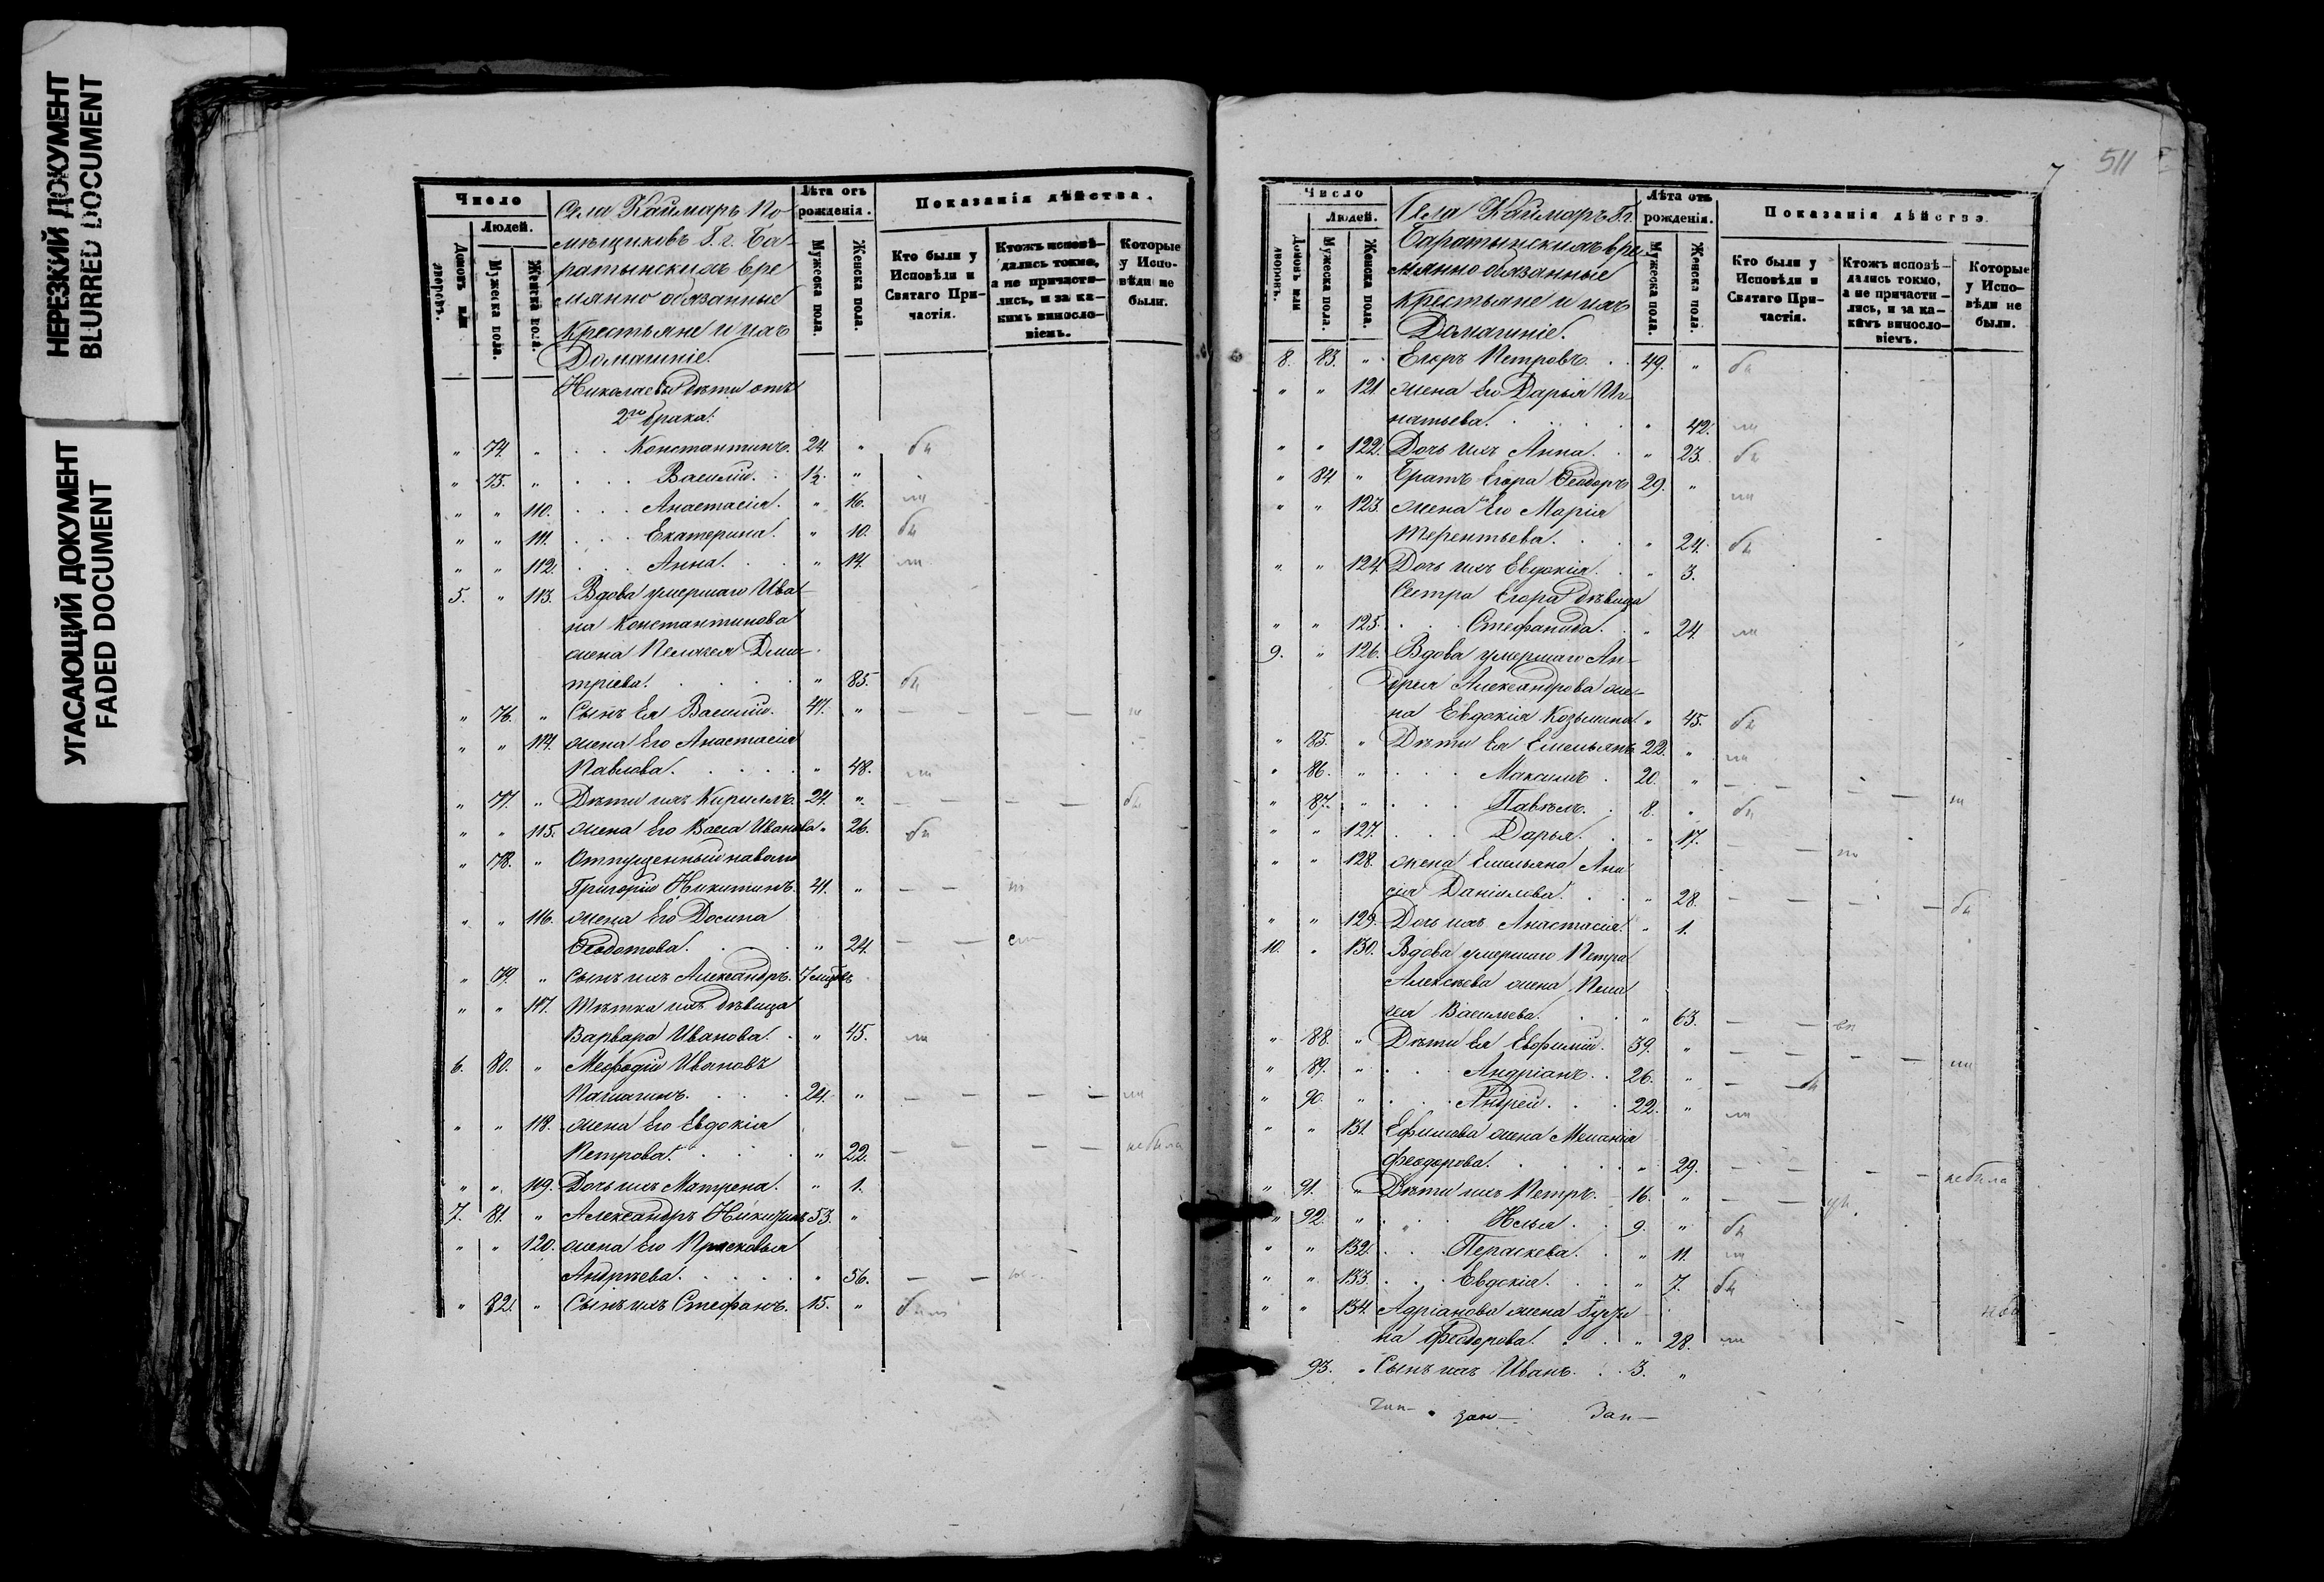 НЕРЕЗКИЙ ДОКУМЕНТ
BLURRED DOCUMENT
УГАСАЮЩИЙ ДОКУМЕНТ
FADED DOCUMENT
Число
Людей.
Домовъ или дворовъ.
Мужеска пола.
Женска пола.
Села Каймаръ По-
мѣщиковъ Г. г. Ба-
ратынскихъ вре
мянно обязанные
Крестьяне и ихъ
Домашніе.
Лѣта отъ
рожденія.
Мужеска пола.
Женска пола.
Показанія дѣйства.
Кто были у
Исповѣди и
Святаго При-
частія.
Ктожъ исповѣ-
дались токмо,
а не причасти-
лись, и за ка-
кимъ виносло-
віемъ.
Которые
у Испо-
вѣди не
были.
Николаевы дѣти отъ
2го брака.
" 74. " Константинъ. 24. " бы
" 75. " Василій. 1½. "
" " 110. Анастасія. " 16. ли
" " 111. Екатерина. " 10. бы
" " 112. Анна. " 14. ли
5. " 113. Вдова умершаго Ива
на Константинова
жена Пелагея Дми-
тріева. " 85. бы
" 76. " Сынъ Ея Василій. 47. " — — — —
" " 114. жена Его Анастасія
Павлова. " 48. ли
" 77. " Дѣти ихъ Кириллъ. 24. " — — — — бы
" " 115. жена Его Васса Иванова " 26. бы
" 78. " Отпущенный на волю
Григорій Никитинъ. 41. " — —
" " 116. жена Его Досина
Ѳедотова. " 24. — —
" 79. " Сынъ ихъ Александръ. 7 мцовъ
" " 117. Тѣтка ихъ дѣвица
Варвара Иванова. " 45. ли
6. 80. " Меѳодій Ивановъ
24. " — — — — ли
" " 118. жена Его Евдокія
Петрова. " 22. — — — — не была
" " 119. Дочь ихъ Матрена. " 1.
7. 81. " Александръ 53. "
" " 120. жена Его Прасковья
Андреева. " 56. — —
" 82. " Сынъ ихъ Стефанъ. 15. " были
7
511
Число
Людей.
Домовъ или дворовъ.
Мужеска пола.
Женска пола.
Села Каймаръ Г. г.
Баратынскихъ вре-
мянно обязанные
Крестьяне и ихъ
Домашніе.
Лѣта отъ
рожденія.
Мужеска пола.
Женска пола.
Показанія дѣйства.
Кто были у
Исповѣди и
Святаго При-
частія.
Ктожъ исповѣ-
дались токмо,
а не причасти-
лись, и за ка-
кимъ виносло-
віемъ.
Которые
у Испо-
вѣди не
были.
8. 83. " Егоръ Петровъ. 49. " бы
" " 121. жена Его Дарья Иг
натьева. " 42. ли
" " 122. Дочь ихъ Анна. " 23. бы
" 84 " Братъ Егора Ѳеодоръ 29. " ли
" " 123. жена Его Марія
Терентьева. " 24. бы
" " 124. Дочь ихъ Евдокія. " 3.
Сестра Егора дѣвица
" " 125. Стефанида. " 24. ли
9. " 126. Вдова умершаго Ан-
дрея Александрова же-
на Евдокія Козьмина " 45. бы
" 85. " Дѣти Ея Емельянъ 22. " ли
" 86. " Максимъ. 20. " — — — —
" 87. " Павелъ. 8. " бы
" " 127. Дарья. " 17. — —
" " 128. жена Емельяна Ани
сія Даніилова. " 28. — — — — бы
" " 129. Дочь ихъ Анастасія. " 1.
10. " 130. Вдова умершаго Петра
Алексѣева жена Пела
гея Васильева. " 63. — —
" 88. " Дѣти Ея Евфимій. 39. " — — — — ли
" 89. " Андріанъ. 26. " — —
" 90. " Андрей. 22. " ли
" " 131. Ефимова жена Меланія
Феодорова. " 29. — — — — не была
" 91. " Дѣти ихъ Петръ. 16. " — —
" 92. " Илья. 9. " бы
" " 132. Параскева. " 11. ли
" " 133. Евдокія. " 7. бы
" " 134. Адріанова жена
на Феодорова. " 28. ли
93. " Сынъ ихъ Иванъ. 3. "
Зап—